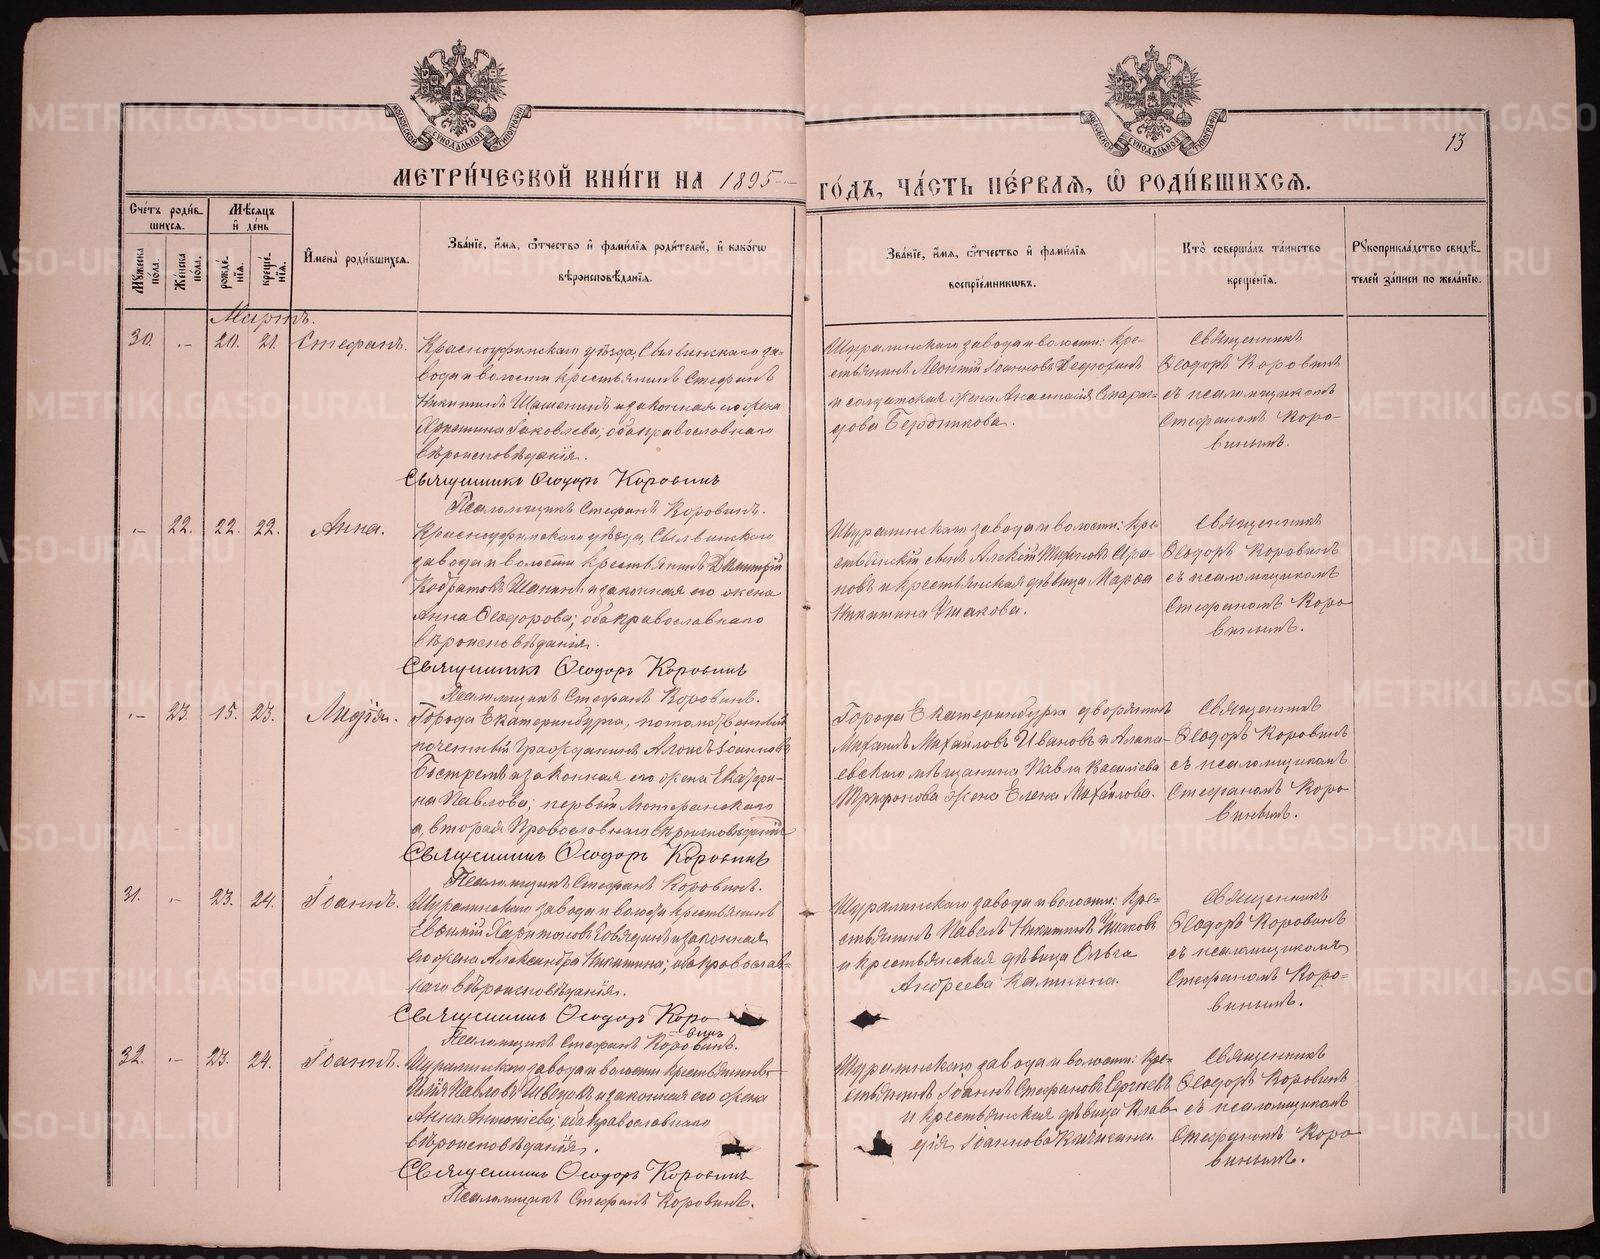 МЕТРИ́ЧЕСКОЙ КНИ́ГИ НА 1895
ГО́ДЪ, ЧА́СТЬ ПЕ́РВАѦ, Ѡ҆ РОДИ́ВШИХСѦ.
13
Сче́тъ роди́в-
шихсѧ.
Мѣ́сѧцъ
и҆ де́нь
Му́жеска по́ла.
Же́нска по́ла.
рожде́нїѧ.
креще́нїѧ.
И҆мена̀ роди́вшихсѧ.
Зва́нїе, и҆́мѧ, ѻ҆́тчество и҆ фами́лїѧ роди́телей, и҆ како́гѡ
вѣроисповѣ́данїѧ.
Зва́нїе, и҆́мѧ, ѻ҆́тчество и҆ фами́лїѧ
воспрїе́мникѡвъ.
Кто̀ соверша́лъ та́инство
креще́нїѧ.
Рꙋкоприкла́дство свидѣ́-
телей за́писи по жела́нїю.
Мартъ.
30. - 20. 21. Стефанъ.
Красноуфимскаго уѣзда, Сылвинскаго за-
вода и волости крестьянинъ Стефанъ
Никитинъ и законная его жена
Яковлева; оба православнаго
вѣроисповѣданія.
Священникъ Ѳеодоръ Коровинъ
Псаломщикъ Стефанъ Коровинъ.
Шуралинскаго завода и волости: кре-
стьянинъ Леонтій Іоанновъ
и солдатская жена Анастасія Спири-
донова Бердникова.
Священникъ
Ѳеодоръ Коровинъ
съ псаломщикомъ
Стефаномъ Коро-
винымъ.
- 22. 22. 22. Анна.
Красноуфимскаго уѣзда, Сылвинскаго
завода и волости крестьянинъ Димитрій
и законная его жена
Анна Ѳеодорова; оба православнаго
вѣроисповѣданія.
Священникъ Ѳеодоръ Коровинъ
Псаломщикъ Стефанъ Коровинъ.
Шуралинскаго завода и волости: кре-
стьянскій сынъ Алексій
и крестьянская дѣвица Марѳа
Никитина Ушакова.
Священникъ
Ѳеодоръ Коровинъ
съ псаломщикомъ
Стефаномъ Коро-
винымъ.
- 23. 15. 23. Лидія.
Города Екатеринбурга, потомственный
почетный гражданинъ Іоанновъ
и законная его жена Екатери-
на Павлова; первый Лютеранскаго
а, вторая Православнаго вѣроисповѣданія
Священникъ Ѳеодоръ Коровинъ
Псаломщикъ Стефанъ Коровинъ.
Города Екатеринбурга дворянинъ
Михаилъ Михайловъ Ивановъ и Алапа-
евскаго мѣщанина Павла Васильева
Трифонова жена Елена Михайлова.
Священникъ
Ѳеодоръ Коровинъ
съ псаломщикомъ
Стефаномъ Коро
винымъ.
31. - 23. 24. Іоаннъ.
Шуралинскаго завода и волости крестьянинъ
Евѳимій Харитоновъ и законная
его жена Александра Никитина; оба православ-
наго вѣроисповѣданія.
Священникъ Ѳеодоръ Коро
винъ
Псаломщикъ Стефанъ Коровинъ.
Шуралинскаго завода и волости: кре-
стьянинъ Павелъ Никитинъ Ушаковъ
и крестьянская дѣвица Ольга
Андреева Калинина.
Священникъ
Ѳеодоръ Коровинъ
съ псаломщикомъ
Стефаномъ Коро-
винымъ.
32. - 23. 24. Іоаннъ.
Шуралинскаго завода и волости крестьянинъ
Павловъ Швецовъ и законная его жена
Анна; оба православнаго
вѣроисповѣданія.
Священникъ Ѳеодоръ Коровинъ
Псаломщикъ Стефанъ Коровинъ.
Шуралинскаго завода и волости: кре-
стьянинъ Іоаннъ Стефановъ Сергѣевъ
и крестьянская дѣвица Клав-
дія Іоаннова Кичигина.
Священникъ
Ѳеодоръ Коровинъ
съ псаломщикомъ
Стефаномъ Коро
винымъ.
METRIKI.GASO-URAL.RU